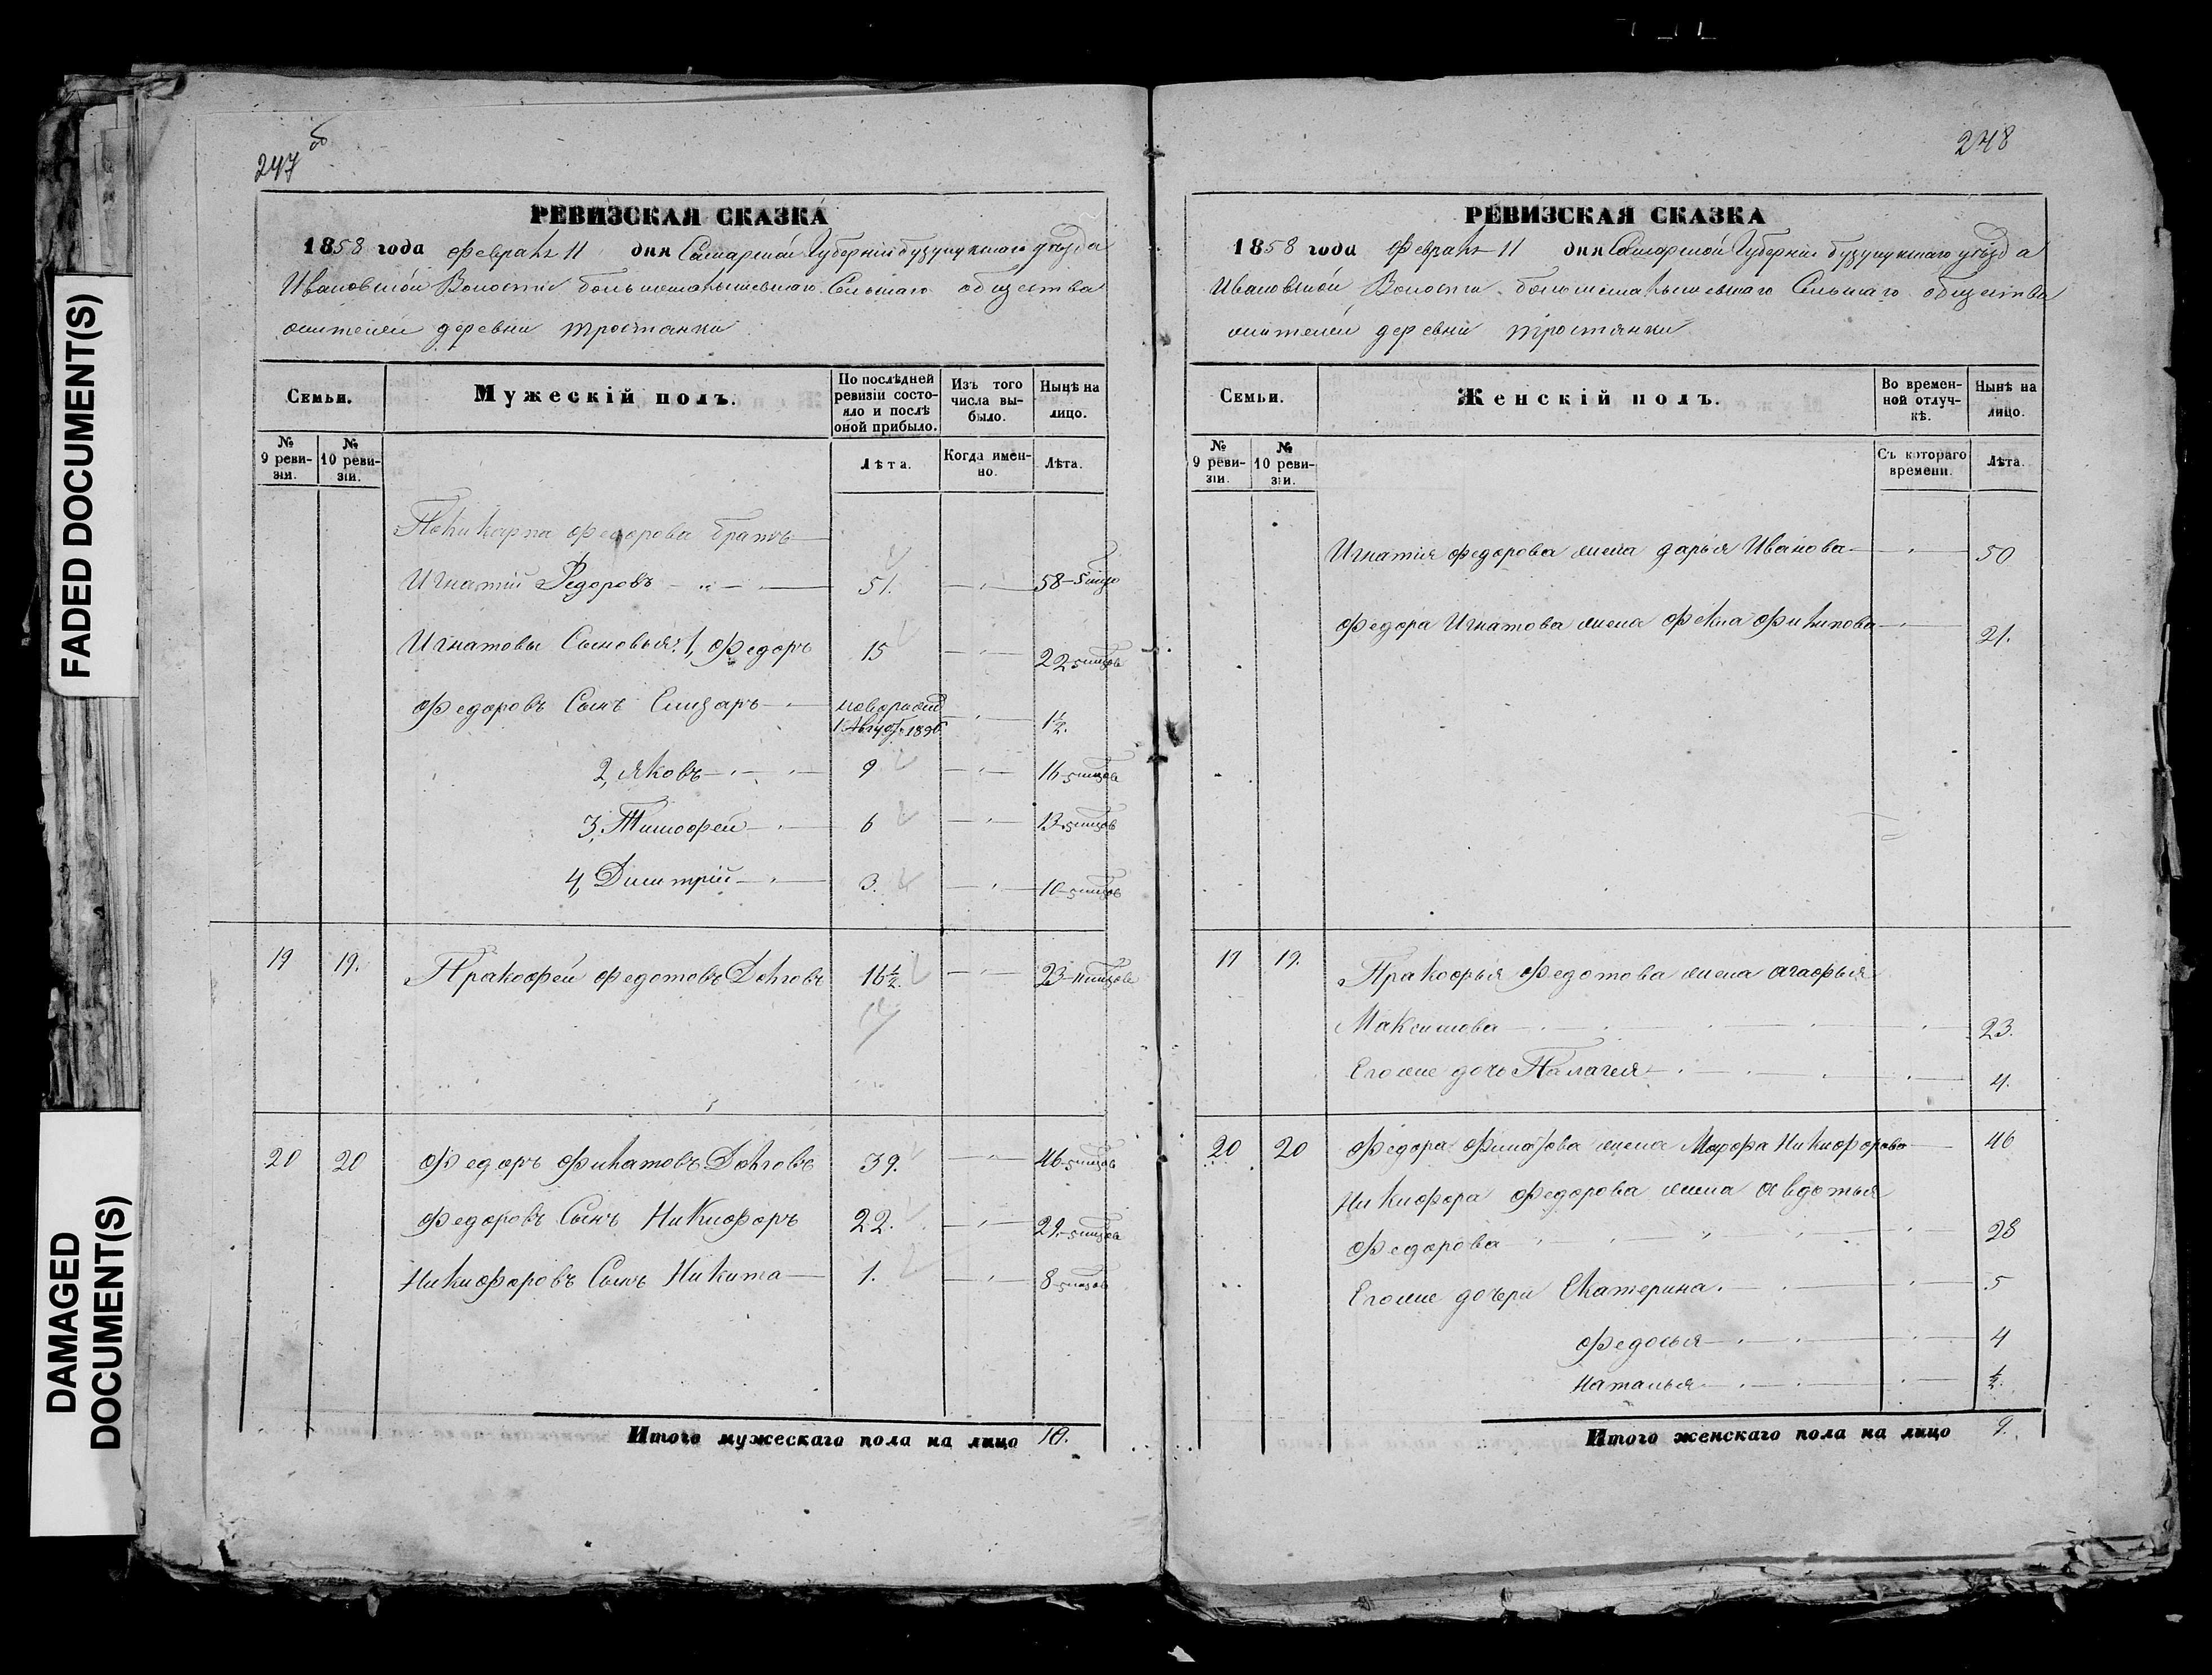 FADED DOCUMENT(S)
DAMAGED DOCUMENT(S)
247 об
РЕВИЗСКАЯ СКАЗКА
1858 года Февраля 11 дня Самарской Губерніи бузулукскаго уѣзда
Ивановской Волости Сельскаго общества
жителей деревни тростянки
Семьи.
Мужескій полъ.
По послѣдней ревизіи состояло и послѣ оной прибыло.
Изъ того числа выбыло.
Нынѣ на лицо.
№ 9 ревизіи.
№ 10 ревизіи.
Лѣта.
Когда именно.
Лѣта.
Поликарпа Федорова братъ
Игнатій Федоровъ 51. 58-5 мцо
Игнатовы Сыновья: 1, Федоръ 15 22-5 мцовъ
Федоровъ Сынъ Елизаръ новорожд 1 Август. 1856 1½.
2, Яковъ 9 16-5 мцовъ
3, Тимофей 6 13-5 мцовъ
4, Димитрій 3. 10-5 мцовъ
19 19. Пракофей Федотовъ Долговъ 16½. 23-11 мцовъ
20 20 Федоръ Филатовъ Долговъ 39. 46-5 мцовъ
Федоровъ Сынъ Никифоръ 22. 29-5 мцовъ
Никифоровъ Сынъ Никита 1. 8-5 мцовъ
Итого мужескаго пола на лицо 10.
248
РЕВИЗСКАЯ СКАЗКА
1858 года Февраля 11 дня Самарской Губерніи бузулукскаго уѣзда
Ивановской Волости Сельскаго общества
жителей деревни тростянки
Семьи.
Женскій полъ.
Во временной отлучкѣ.
Нынѣ на лицо.
№ 9 ревизіи.
№ 10 ревизіи.
Съ котораго времени.
Лѣта.
Игнатія Федорова жена дарья Иванова 50
Федора Игнатова жена Фекла Филипова 21.
19 19. Пракофья Федотова жена агафья
Максимова 23.
Егоже дочь Палагея 4.
20 20 Федора Филатова жена Марфа Никифорова 46
Никифора Федорова жена авдотья
Федорова 28
Егоже дочери Екатерина. 5
Федосья 4
Наталья ½.
Итого женскаго пола на лицо 9.